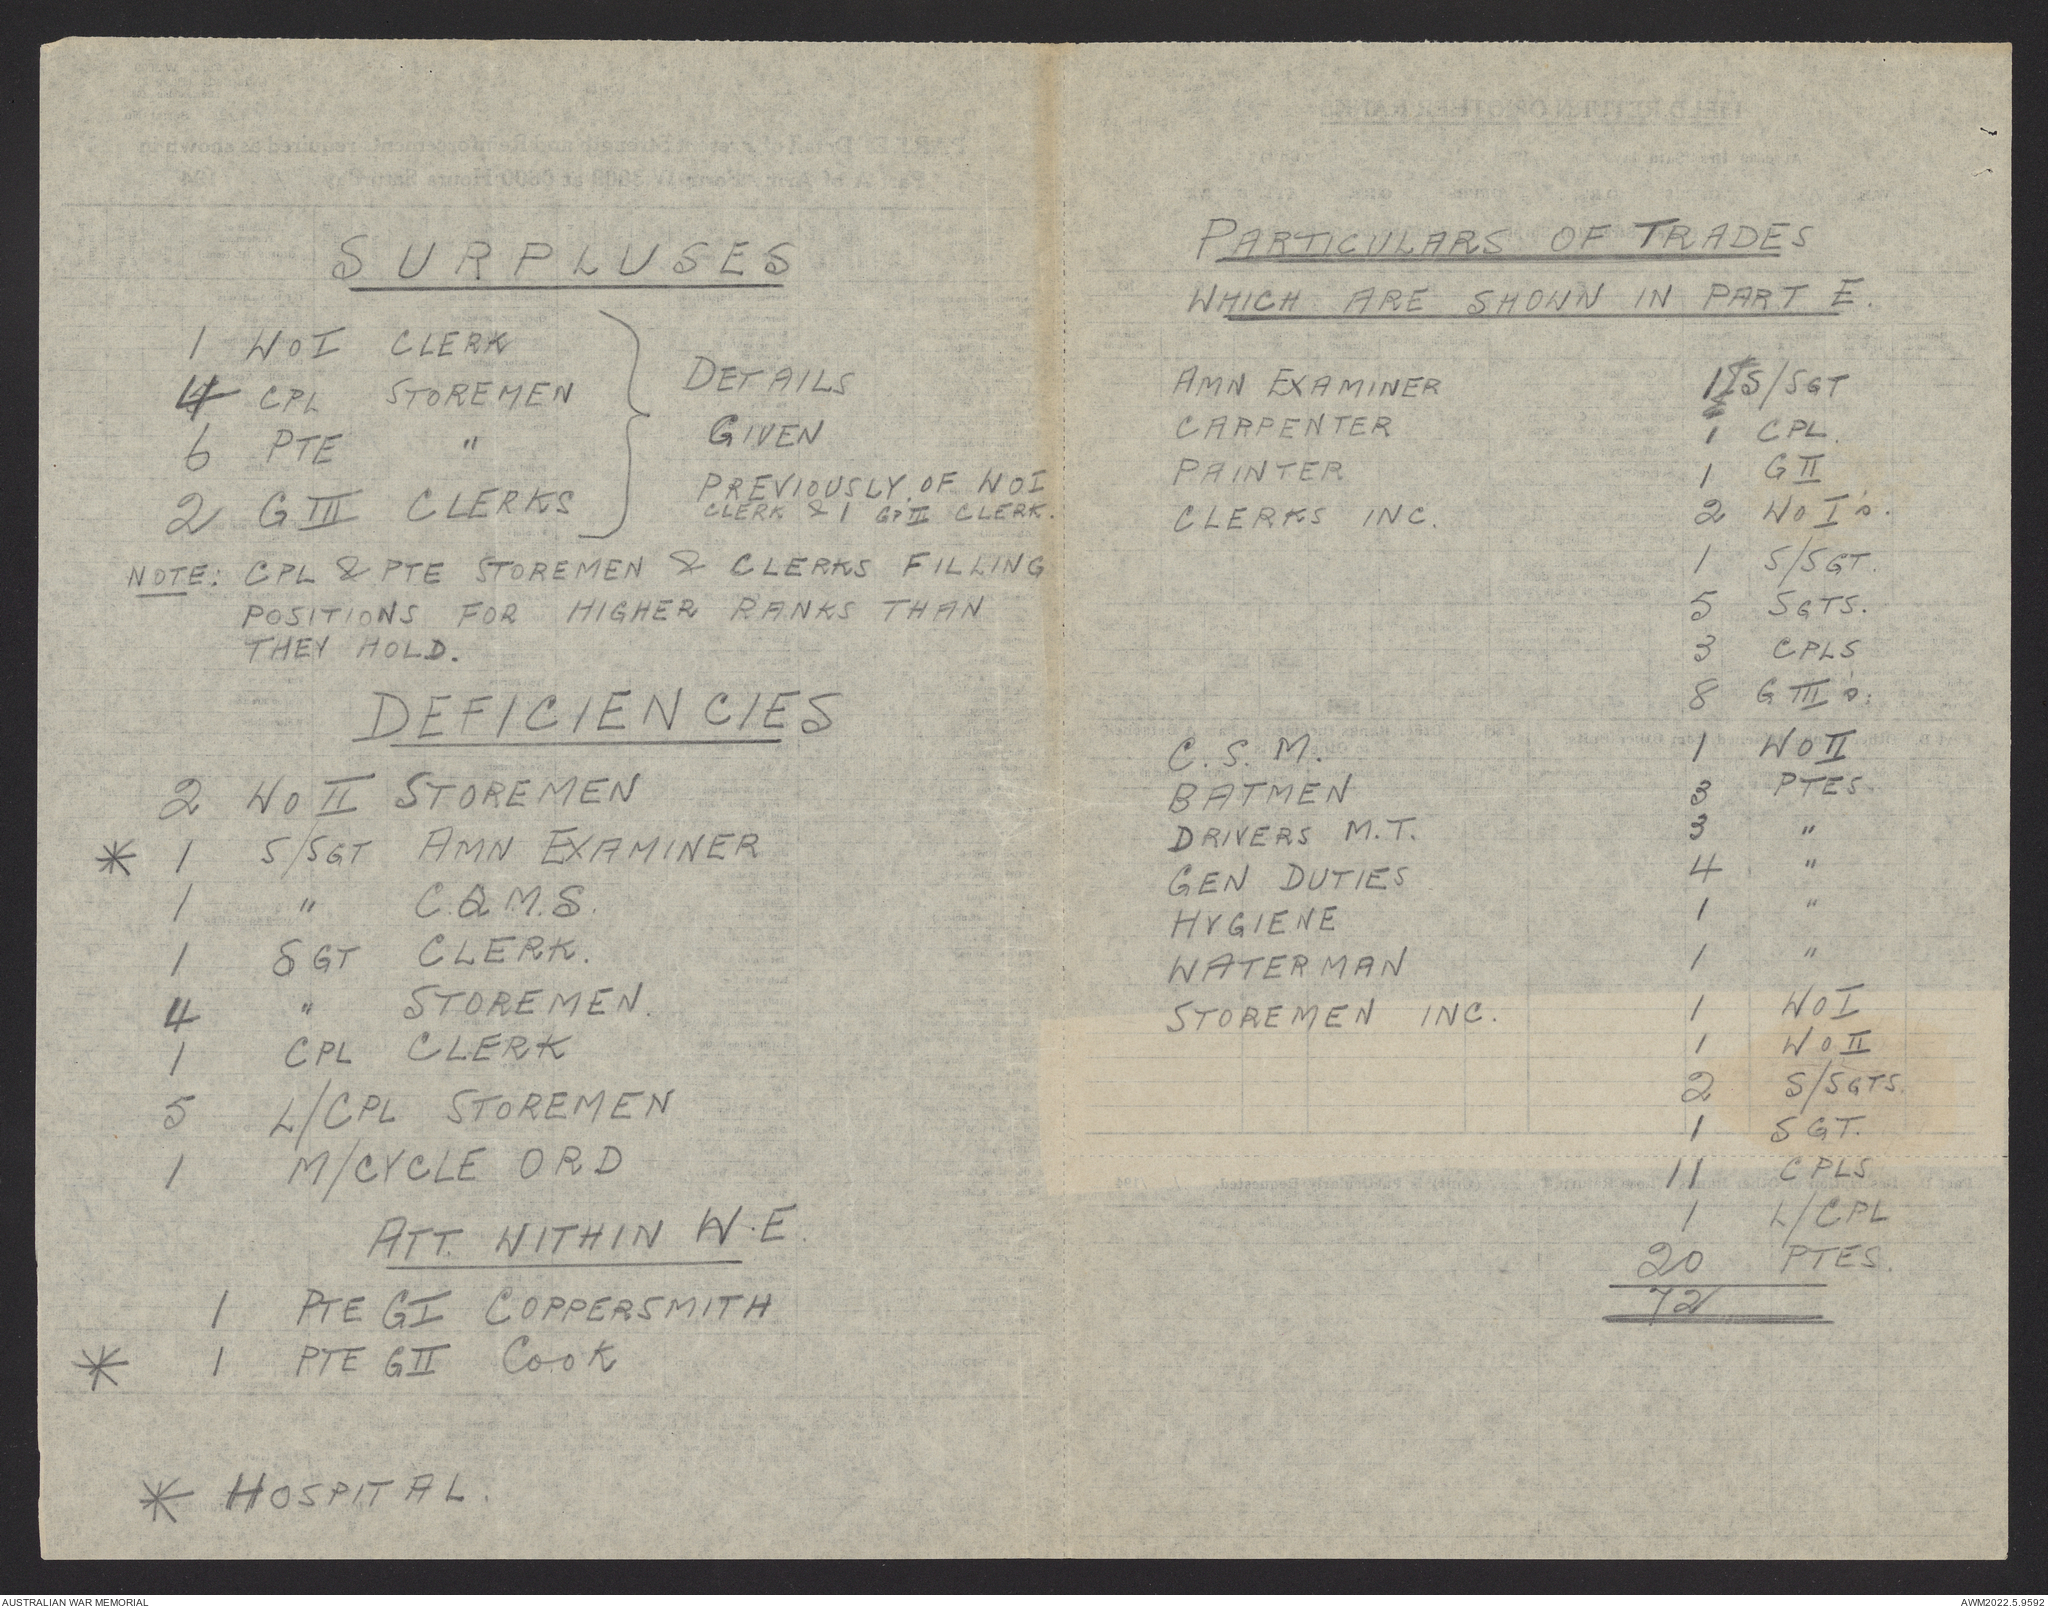 SURPLUSES
1 WO I CLERK
4 CPL STOREMEN
6 PTE "
2 G III CLERKS
DETAILS
GIVEN
PREVIOUSLY OF WO I
CLERK & 1 GP III CLERK.
NOTE: CPL & PTE STOREMEN & CLERKS FILLING
POSITIONS FOR HIGHER RANKS THAN
THEY HOLD.
DEFICIENCIES
2 WO II STOREMEN
* 1 S/SGT AMN EXAMINER
1 " C.Q.M.S.
1 SGT CLERK.
4 " STOREMEN.
1 CPL CLERK
5 L/CPL STOREMEN
1 M/CYCLE ORD
ATT. WITHIN W.E.
1 PTE G I COPPERSMITH
* 1 PTE G II COOK
* HOSPITAL.
PARTICULARS OF TRADES
WHICH ARE SHOWN IN PART E.
AMN EXAMINER 1 S/SGT
CARPENTER 1 CPL.
PAINTER 1 G II
CLERKS INC. 2 WO I's.
1 S/SGT.
5 SGTS.
3 CPLS
8 G III's.
C.S.M. 1 WO II
BATMEN 3 PTES.
DRIVERS M.T. 3 "
GEN DUTIES 4 "
HYGIENE 1 "
WATERMAN 1 "
STOREMEN INC. 1 WO I
1 WO II
2 S/SGTS.
1 SGT.
11 CPLS
1 L/CPL
20 PTES.
72
AUSTRALIAN WAR MEMORIAL
AWM2022.5.9592